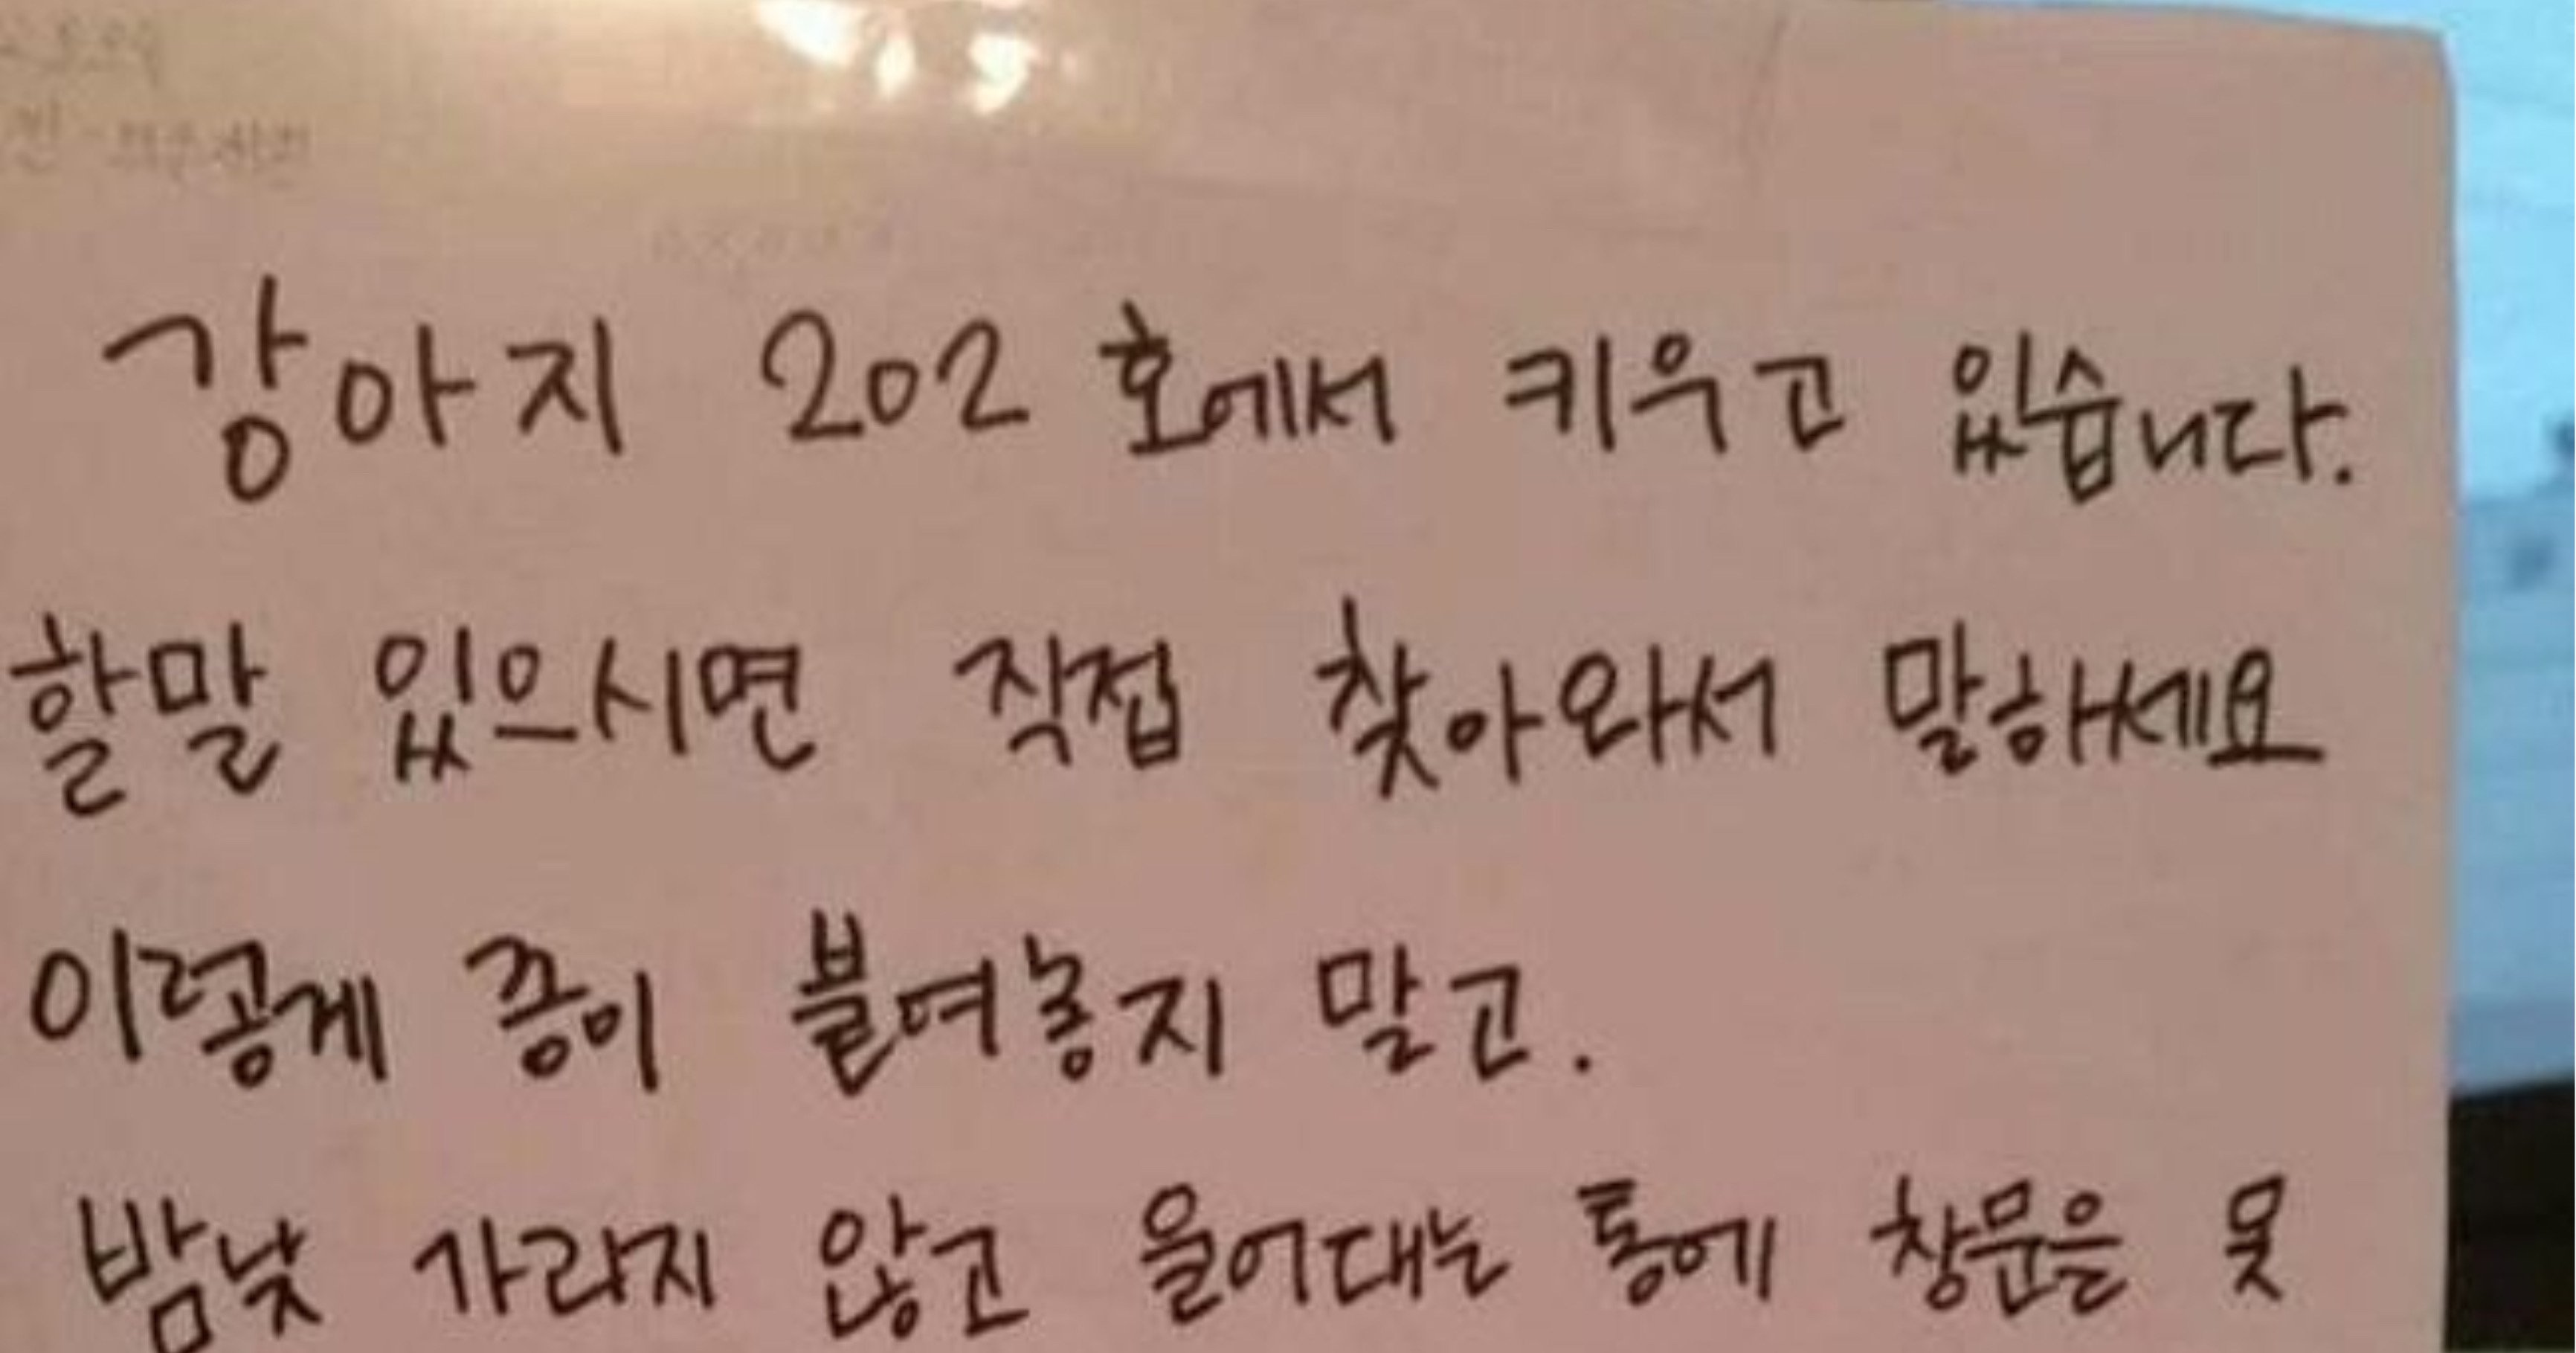 강아지 202호에서 키우고 있습니다.
할말 있으시면 직접 찾아와서 말하세요
이렇게 종이 붙여놓지 말고.
밤낮 가리지 않고 울어대는 통에 창문을 못